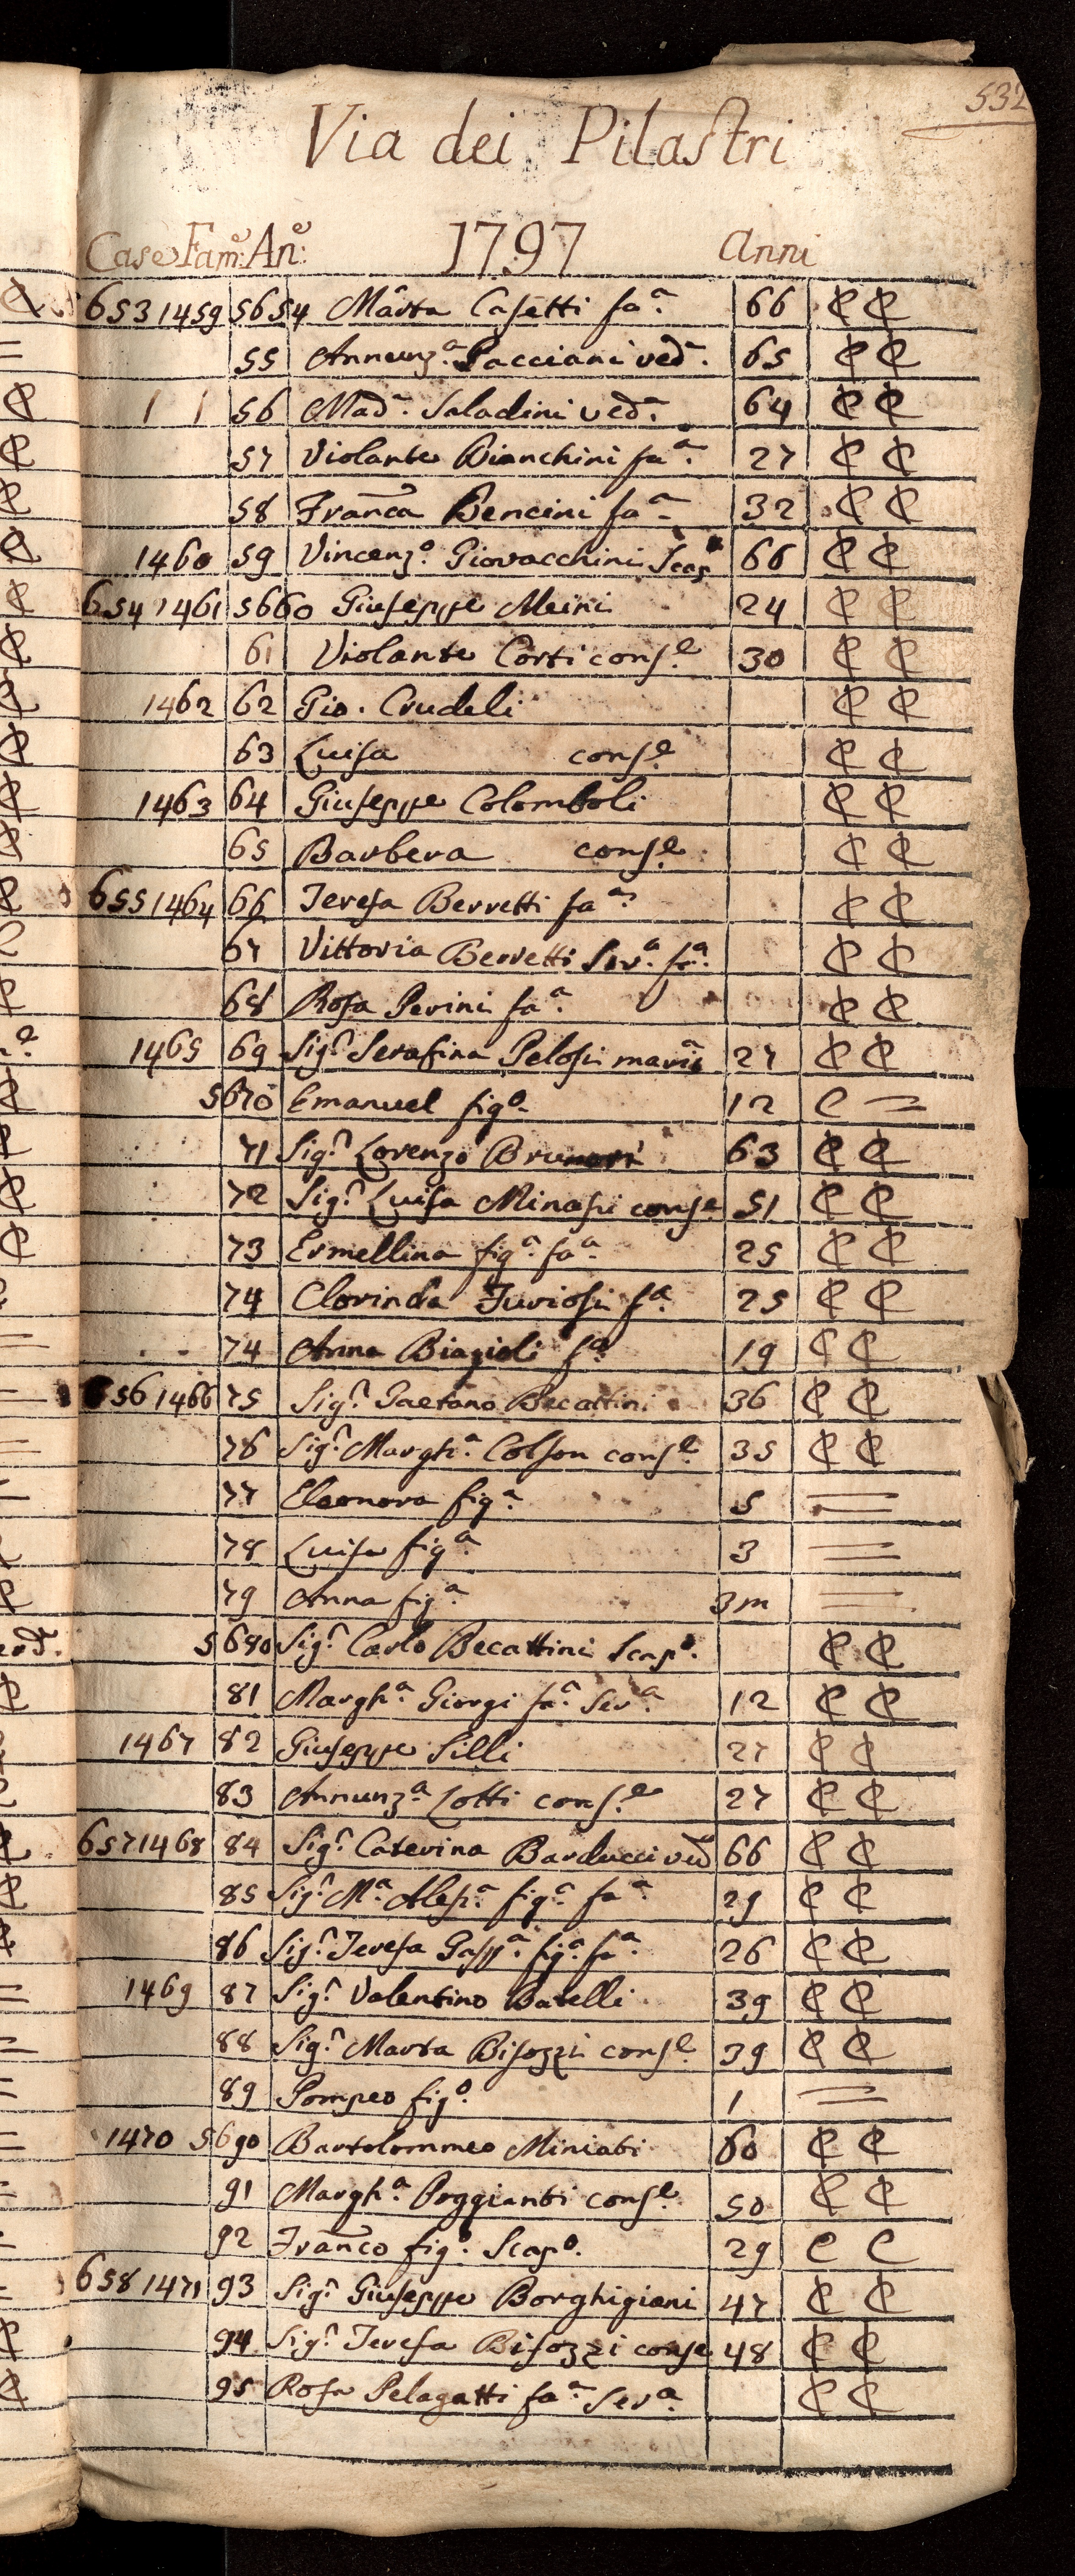 532
Via dei Pilastri
Case Fam:e An:e 1797 Anni
653 1459 5654 Marta Casetti fa.a 66 C C
55 Annunz.a Pacciani ved.a 65 C C
1 1 56 Mad.a Saladini ved.a 64 C C
57 Violante Bianchini fa.a 27 C C
58 Franca Bencini fa.a 32 C C
1460 59 Vincenz.o Giovacchini Scap.o 66 C C
654 1461 5660 Giuseppe Meini 24 C C
61 Violante Corti cons.e 30 C C
1462 62 Gio. Crudeli C C
63 Luisa cons.e C C
1463 64 Giuseppe Colomboli C C
65 Barbera cons.e C C
655 1464 66 Teresa Berretti fa.a C C
67 Vittoria Berretti Ser.a fa.a C C
68 Rosa Perini fa.a C C
1465 69 Sig.r Serafina Pelosi marit.a 27 C C
5670 Emanuel fig.o 12 C =
71 Sig.r Lorenzo 63 C C
72 Sig.r Luisa Minasi conse 51 C C
73 Ermellina fig.a fa.a 25 C C
74 Clorinda Furiosi fa. 25 C C
74 Anna Biagioli fa. 19 C C
656 1466 75 Sig.r Gaetano Becattini 36 C C
76 Sig.r Margh.a Colson cons.e 35 C C
77 Eleonora fig.a 5 =
78 Luisa fig.a 3 =
79 Anna fig.a 3m =
5680 Sig.r Carlo Becattini Scap.o C C
81 Margh.a Giorgi fa.a Ser.a 12 C C
1467 82 Giuseppe Silli 27 C C
83 Annunz.a Lotti cons.e 27 C C
657 1468 84 Sig.r Caterina Barducci ved.a 66 C C
85 Sig.r M.a Aless.a fig.a fa.a 29 C C
86 Sig.r Teresa Gasp.a fig.a fa.a 26 C C
1469 87 Sig.r Valentino Batelli 39 C C
88 Sig.r Marta Bisozzi cons.e 39 C C
89 Pompeo fig.o 1 =
1470 5690 Bartolommeo Miniati 60 C C
91 Margh.a Poggianti cons.e 50 C C
92 Franco fig.o Scap.o 29 C C
658 1471 93 Sig.r Giuseppe Borghigiani 47 C C
94 Sig.r Teresa Bisozzi conse 48 C C
95 Rosa Pelagatti fa.a Ser.a C C